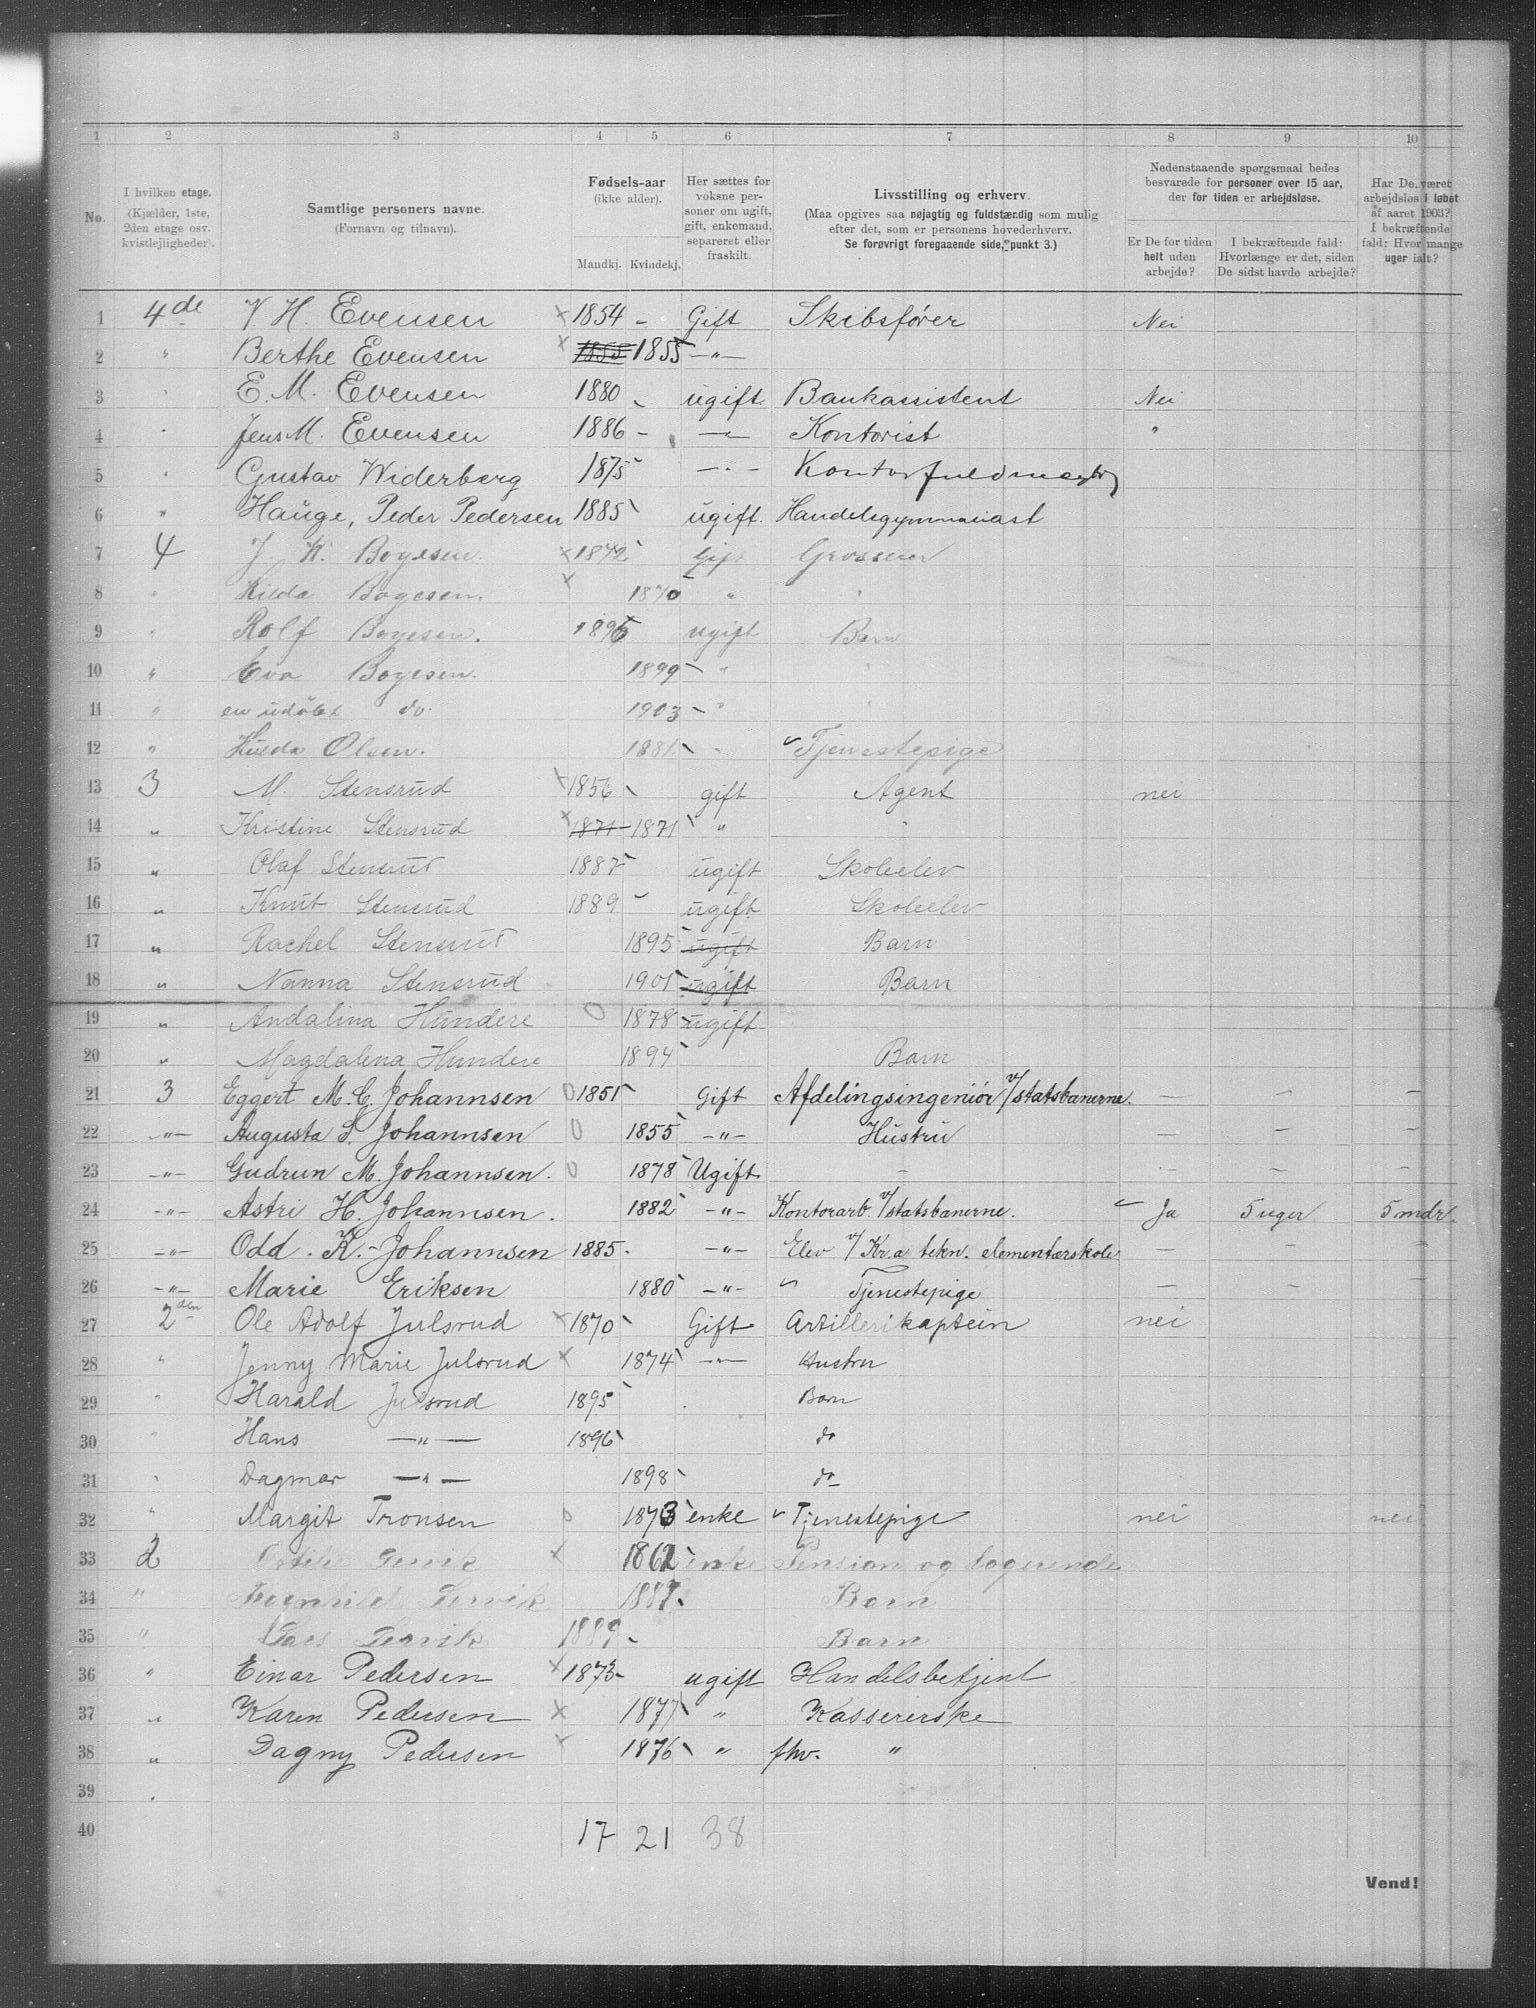 1 2 3 4 5 6 7 8 9 10
No.
I hvilken etage. (Kjælder, 1ste, 2den etage osv. kvistlejligheder).
Samtlige personers navne. (Fornavn og tilnavn).
Fødsels-aar (ikke alder). Mandkj. Kvindekj.
Her sættes for voksne personer om ugift, gift, enkemand, separeret eller fraskilt.
Livsstilling og erhverv. (Maa opgives saa nøjagtig og fuldstændig som mulig efter det, som er personens hovederhverv. Se forøvrigt foregaaende side, punkt 3.)
Nedenstaaende spørgsmaal bedes besvarede for personer over 15 aar, der for tiden er arbejdsløse.
Er De for tiden helt uden arbejde?
I bekræftende fald: Hvorlænge er det, siden De sidst havde arbejde?
Har De været arbejdsløs i løbet af aaret 1903? I bekræftende fald: Hvor mange uger ialt?
1 4de V. H. Evensen × 1854 - Gift Skibsfører Nei
2 " Berthe Evensen × 1855 1855 -"-
3 " E. M. Evensen 1880 - ugift Bankassistent Nei
4 " Jens M. Evensen 1886 - -"- Kontorist "
5 " Gustav Widerberg 1875 -"- Kontorfuldmegtig
6 " Hauge, Peder Pedersen 1885 ugift. Handelsgymnasiast
7 4 J. K. Boyesen. × 1872 Gift Grosserer
8 " Hilda Boyesen. × 1870 " "
9 " Rolf Boyesen. 1896 ugift Barn
10 " Eva Boyesen. 1899 " "
11 " en udøbt do. 1903 " "
12 " Hulda Olsen. 1881. " Tjenestepige
13 3 M. Stensrud × 1856 gift Agent nei
14 " Kristine Stensrud × 1871 1871 " "
15 " Olaf Stensrud 1887 ugift Skoleelev
16 " Knut Stensrud 1889 ugift Skoleelev
17 " Rachel Stensrud 1895 ugift Barn
18 " Nanna Stensrud 1901 ugift Barn
19 " Andalina Hundere 0 1878 ugift
20 " Magdalena Hundere 1894 Barn
21 3 Eggert M. C. Johannsen 0 1851 Gift Afdelingsingeniør v/statsbanerne. - - -
22 -"- Augusta S. Johannsen 0 1855 -"- Hustru - - -
23 -"- Gudrun M. Johannsen. 0 1878 Ugift. - - - -
24 -"- Astri H. Johannsen. 1882 -"- Kontorarb. v/statsbanerne. Ja 5 uger 5 mdr.
25 -"- Odd. K. Johannsen 1885. -"- Elev v/ Kr.a tekn. elementærskole - - -
26 -"- Marie Eriksen 1880 -"- Tjenestepige - - -
27 2den Ole Adolf Julsrud × 1870 Gift Artillerikaptein nei
28 " Jenny Marie Julsrud × 1874 -"- Hustru
29 " Harald Julsrud 1895 Barn
30 " Hans -"- 1896 do
31 " Dagmar -"- 1898 do
32 " Margit Tronsen 0 1873 enke Tjenestepige nei nei
33 2 × 1862 enke Pension og logerende
34 " 1887. Barn
35 " Lars 1889 - Barn
36 " Einar Pedersen × 1873 - ugift Handelsbetjent
37 " Karen Pedersen × 1877 " Kassererske
38 " Dagny Pedersen × 1876 " fhv. "
39
40 17 21 38
Vend!